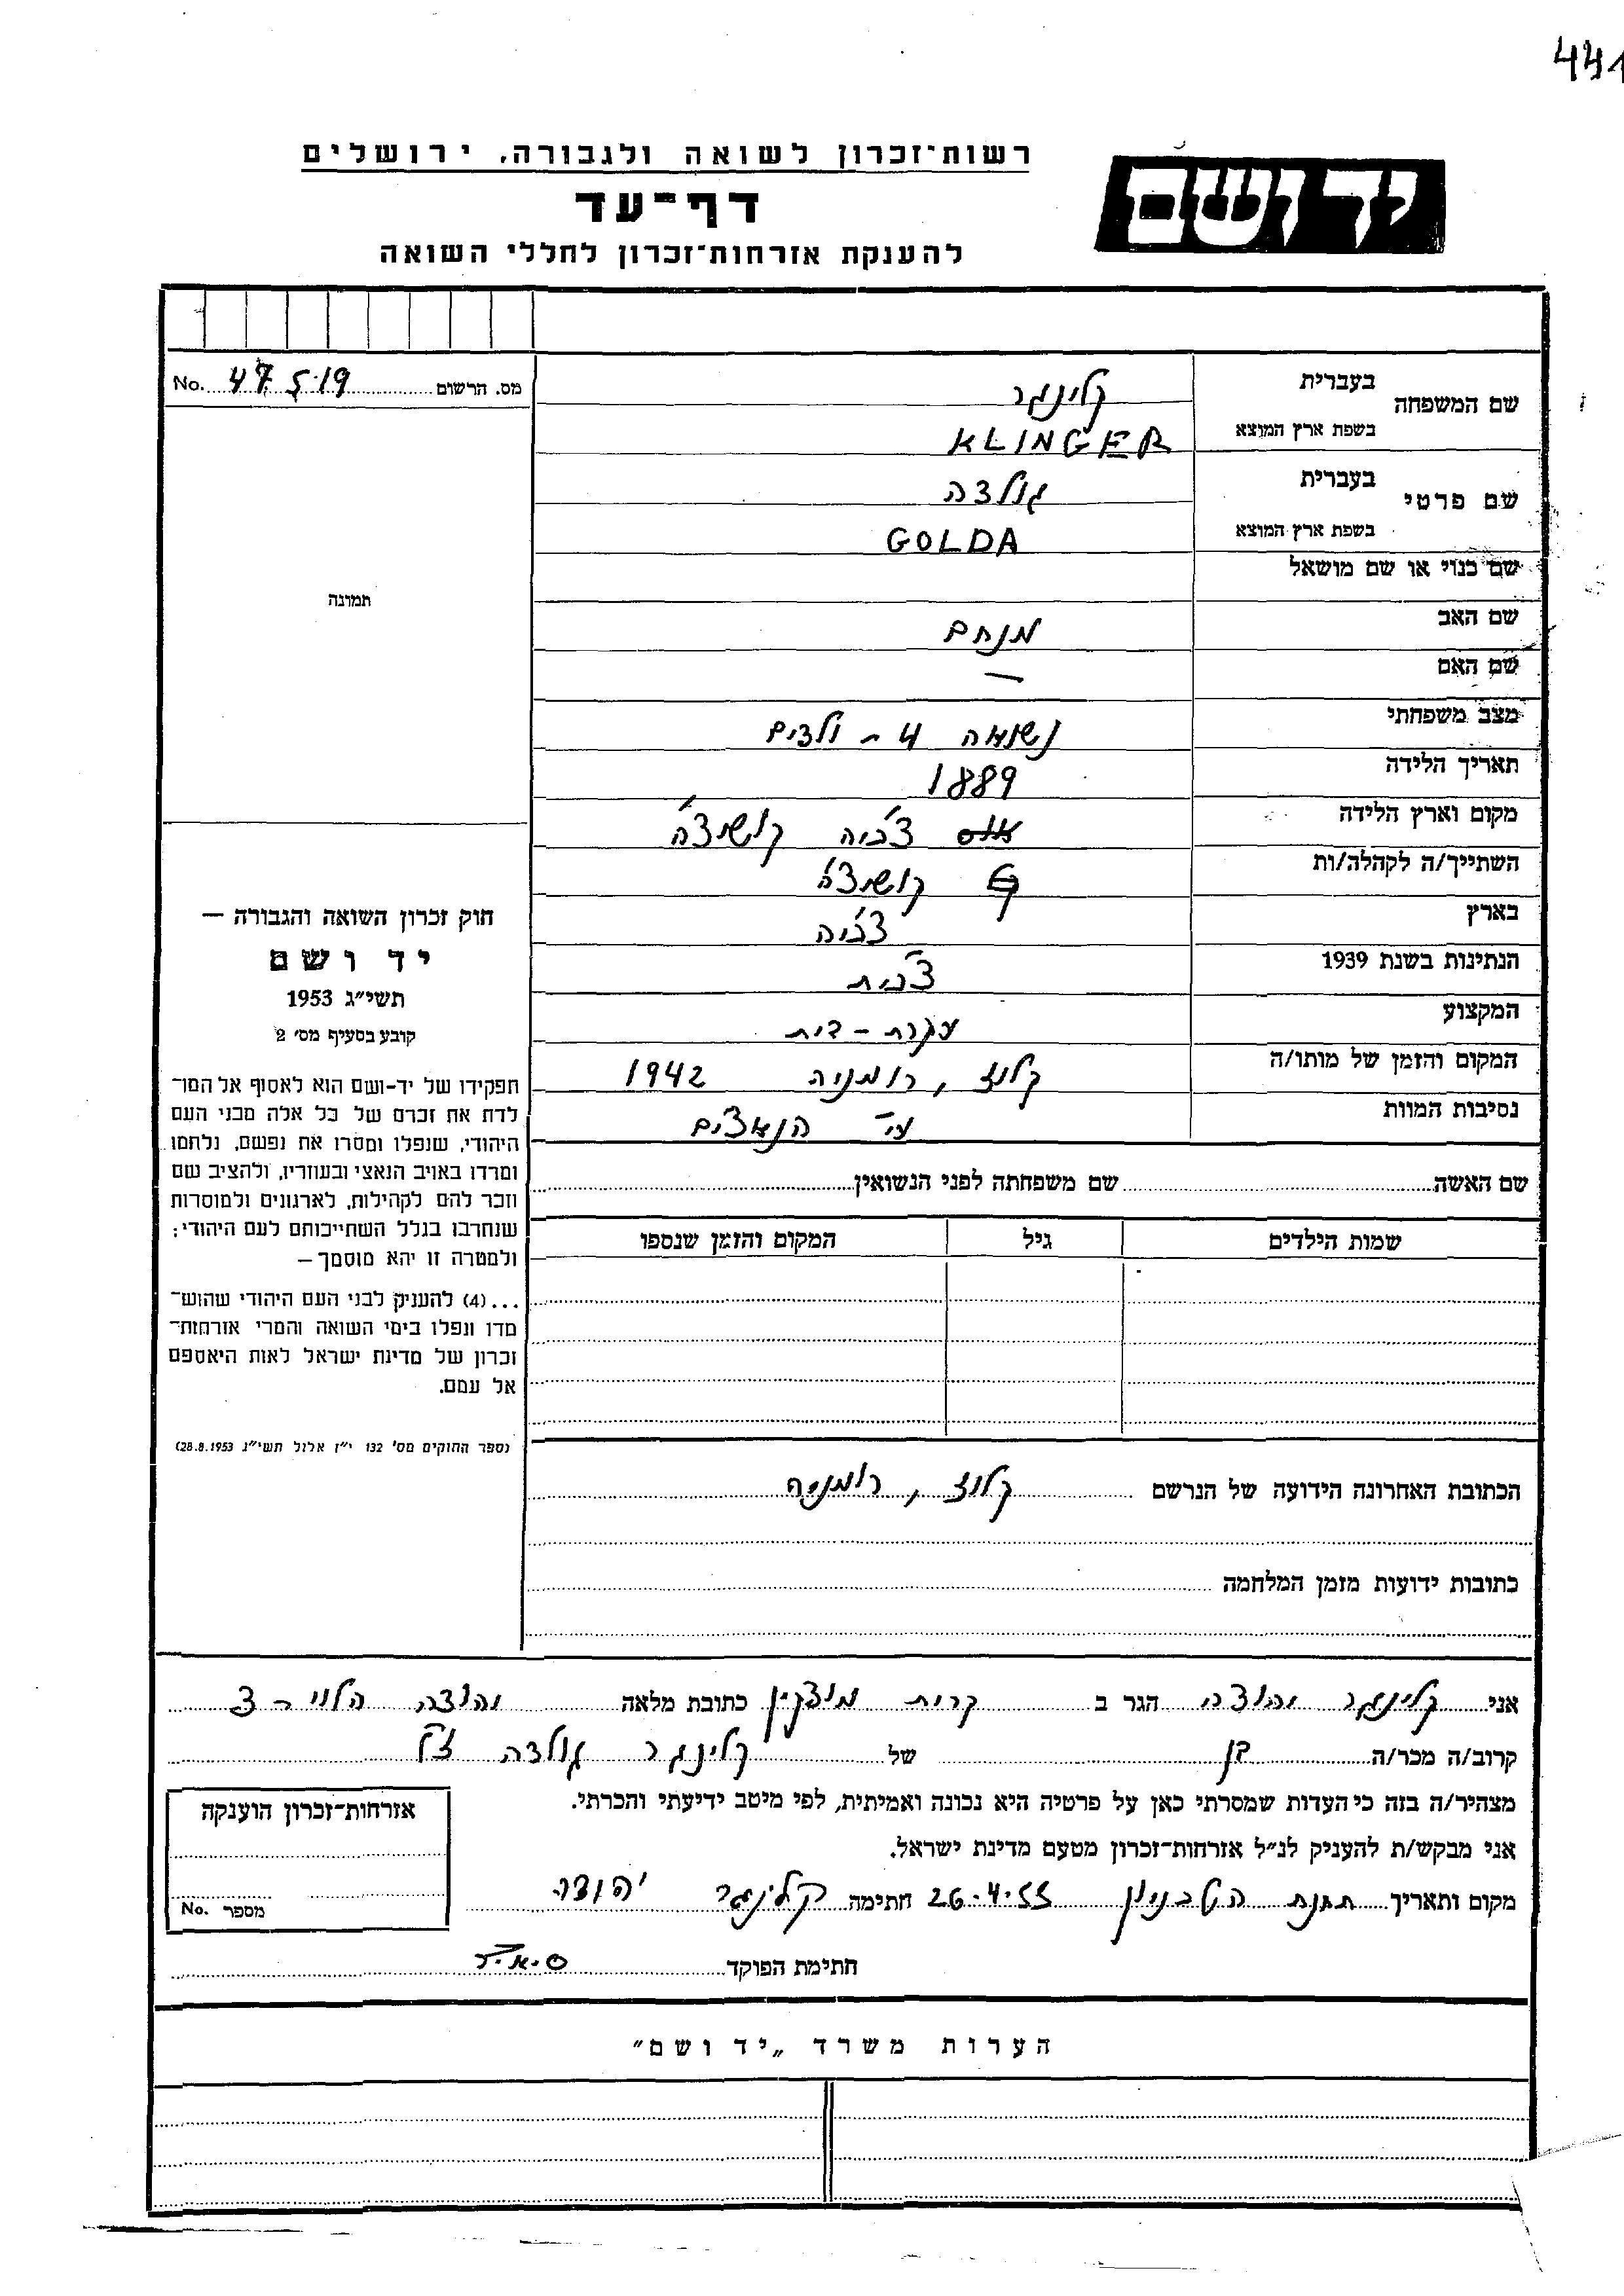 441
רשות־זכרון לשואה ולגבורה, ירושלים
יד ושם
דף־עד
להענקת אזרחות־זכרון לחללי השואה
מס. הרשום No. 47 5.19
שם המשפחה
בעברית קלינגר
בשפת ארץ המוצא KLINGER
שם פרטי
בעברית גולדה
בשפת ארץ המוצא GOLDA
שם כנוי או שם מושאל
שם האב מנחם
שם האם —
מצב משפחתי נשואה 4 - ילדים
תאריך הלידה 1889
מקום וארץ הלידה צ'כיה קושיצה
השתייך/ה לקהלה/ות קושיצה
בארץ צ'כיה
הנתינות בשנת 1939 צ'כית
המקצוע עקרת - בית
המקום והזמן של מותו/ה קלוז', רומניה 1942
נסיבות המוות ע"י הנאצים
שם האשה שם משפחתה לפני הנשואין
שמות הילדים גיל המקום והזמן שנספו
תמונה
חוק זכרון השואה והגבורה —
יד ושם
תשי״ג 1953
קובע בסעיף מס׳ 2
תפקידו של יד-ושם הוא לאסוף אל המו־
לדת את זכרם של כל אלה מבני העם
היהודי, שנפלו ומסרו את נפשם, נלחמו
ומרדו באויב הנאצי ובעוזריו, ולהציב שם
וזכר להם לקהילות, לארגונים ולמוסדות
שנחרבו בגלל השתייכותם לעם היהודי;
ולמטרה זו יהא מוסמך —
...(4) להעניק לבני העם היהודי שהוש־
מדו ונפלו בימי השואה והמרי אזרחות־
זכרון של מדינת ישראל לאות היאספם
אל עמם.
(ספר החוקים מס׳ 132 י״ז אלול תשי״ג 28.8.1953)
הכתובת האחרונה הידועה של הנרשם קלוז', רומניה
כתובות ידועות מזמן המלחמה
אני קלינגר יהודה הגר ב קרית מוצקין כתובת מלאה יהודה הלוי - 3
קרוב/ה מכר/ה בן של קלינגר גולדה ז"ל
מצהיר/ה בזה כי העדות שמסרתי כאן על פרטיה היא נכונה ואמיתית, לפי מיטב ידיעתי והכרתי.
אני מבקש/ת להעניק לנ״ל אזרחות־זכרון מטעם מדינת ישראל.
מקום ותאריך תחנת 26.4.55 חתימה קלינגר יהודה
אזרחות־זכרון הוענקה
מספר No.
חתימת הפוקד
הערות משרד „יד ושם״